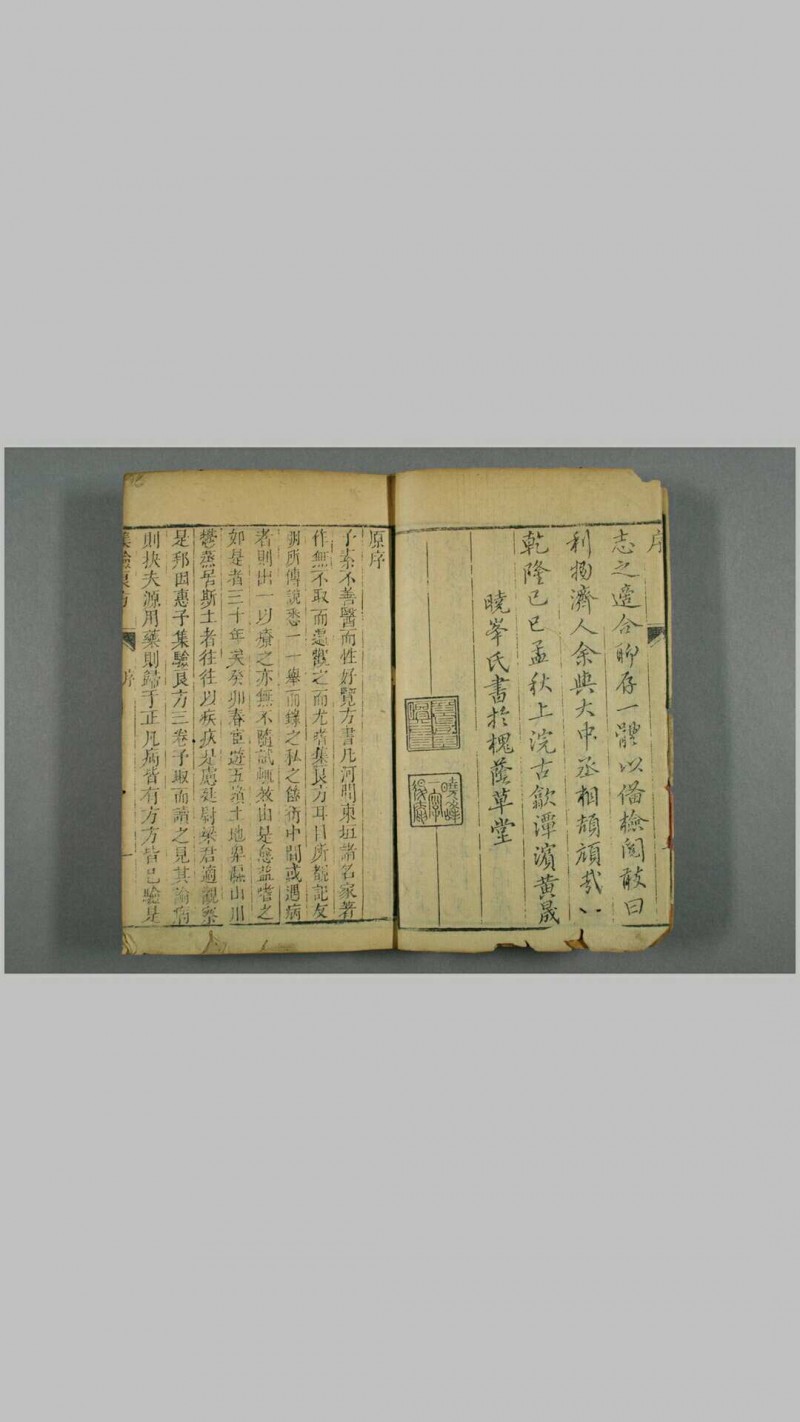 序
志之適合聊存一體以備檢閱敢曰
利物濟人余與大中丞相頡頏哉
乾隆己巳孟秋上浣古歙潭濱黃晟
曉峯氏書於槐蔭草堂
曉峯
原序
予素不善醫而性好覽方書凡河間東垣諸名家著
作無不取而遍觀之而尤嗜集良方耳目所覩記友
朋所傳說悉一一舉而錄之私之篋衍中間或遇病
者則出一以療之亦無不隨試輒效由是愈益嗜之
如是者三十年矣癸卯春宦遊五嶺土地卑隰山川
鬱蒸居斯土者往往以疾疢是慮廷尉梁君適觀察
是邦因惠予集驗良方三卷予取而讀之見其論病
則抉夫源用藥則歸于正凡病皆有方方皆已驗是
集驗良方
序
一